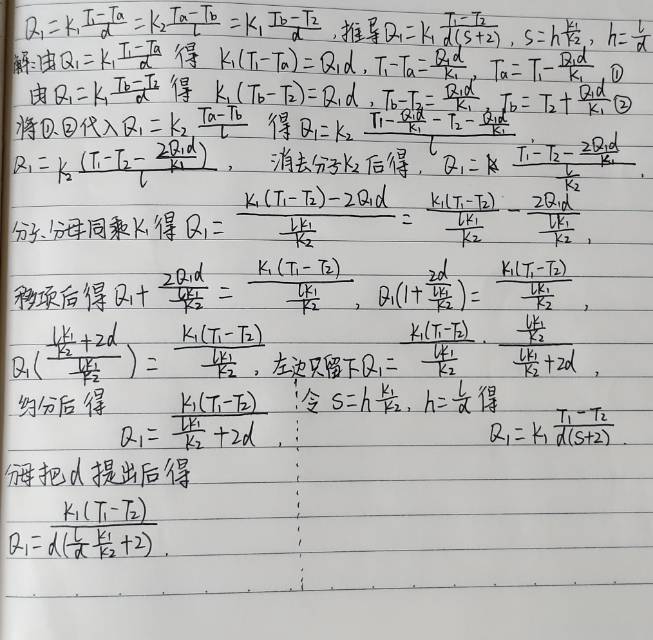 Q₁=K₁(T₁-Ta)/d=K₂(Ta-Tb)/l=K₁(Tb-T₂)/d, 推导Q₁=K₁(T₁-T₂)/(d(s+2)), s=hK₁/K₂, h=l/d
解:由Q₁=K₁(T₁-Ta)/d 得 K₁(T₁-Ta)=Q₁d, T₁-Ta=Q₁d/K₁, Ta=T₁-Q₁d/K₁ ①
由Q₁=K₁(Tb-T₂)/d 得 K₁(Tb-T₂)=Q₁d, Tb-T₂=Q₁d/K₁, Tb=T₂+Q₁d/K₁ ②
将①,②代入Q₁=K₂(Ta-Tb)/l 得Q₁=K₂(T₁-Q₁d/K₁-T₂-Q₁d/K₁)/l
Q₁=K₂(T₁-T₂-2Q₁d/K₁)/l, 消去分子K₂后得, Q₁=(T₁-T₂-2Q₁d/K₁)/(l/K₂).
分子、分母同乘K₁得Q₁=(K₁(T₁-T₂)-2Q₁d)/(lK₁/K₂)=K₁(T₁-T₂)/(lK₁/K₂)-2Q₁d/(lK₁/K₂),
移项后得Q₁+2Q₁d/(lK₁/K₂)=K₁(T₁-T₂)/(lK₁/K₂), Q₁(1+2d/(lK₁/K₂))=K₁(T₁-T₂)/(lK₁/K₂),
Q₁((lK₁/K₂+2d)/(lK₁/K₂))=K₁(T₁-T₂)/(lK₁/K₂), 左边只留下Q₁=K₁(T₁-T₂)/(lK₁/K₂)·(lK₁/K₂)/(lK₁/K₂+2d),
约分后得
Q₁=K₁(T₁-T₂)/(lK₁/K₂+2d).
分母把d提出后得
Q₁=K₁(T₁-T₂)/(d(l/d K₁/K₂+2)).
令s=hK₁/K₂, h=l/d得
Q₁=K₁(T₁-T₂)/(d(s+2)).